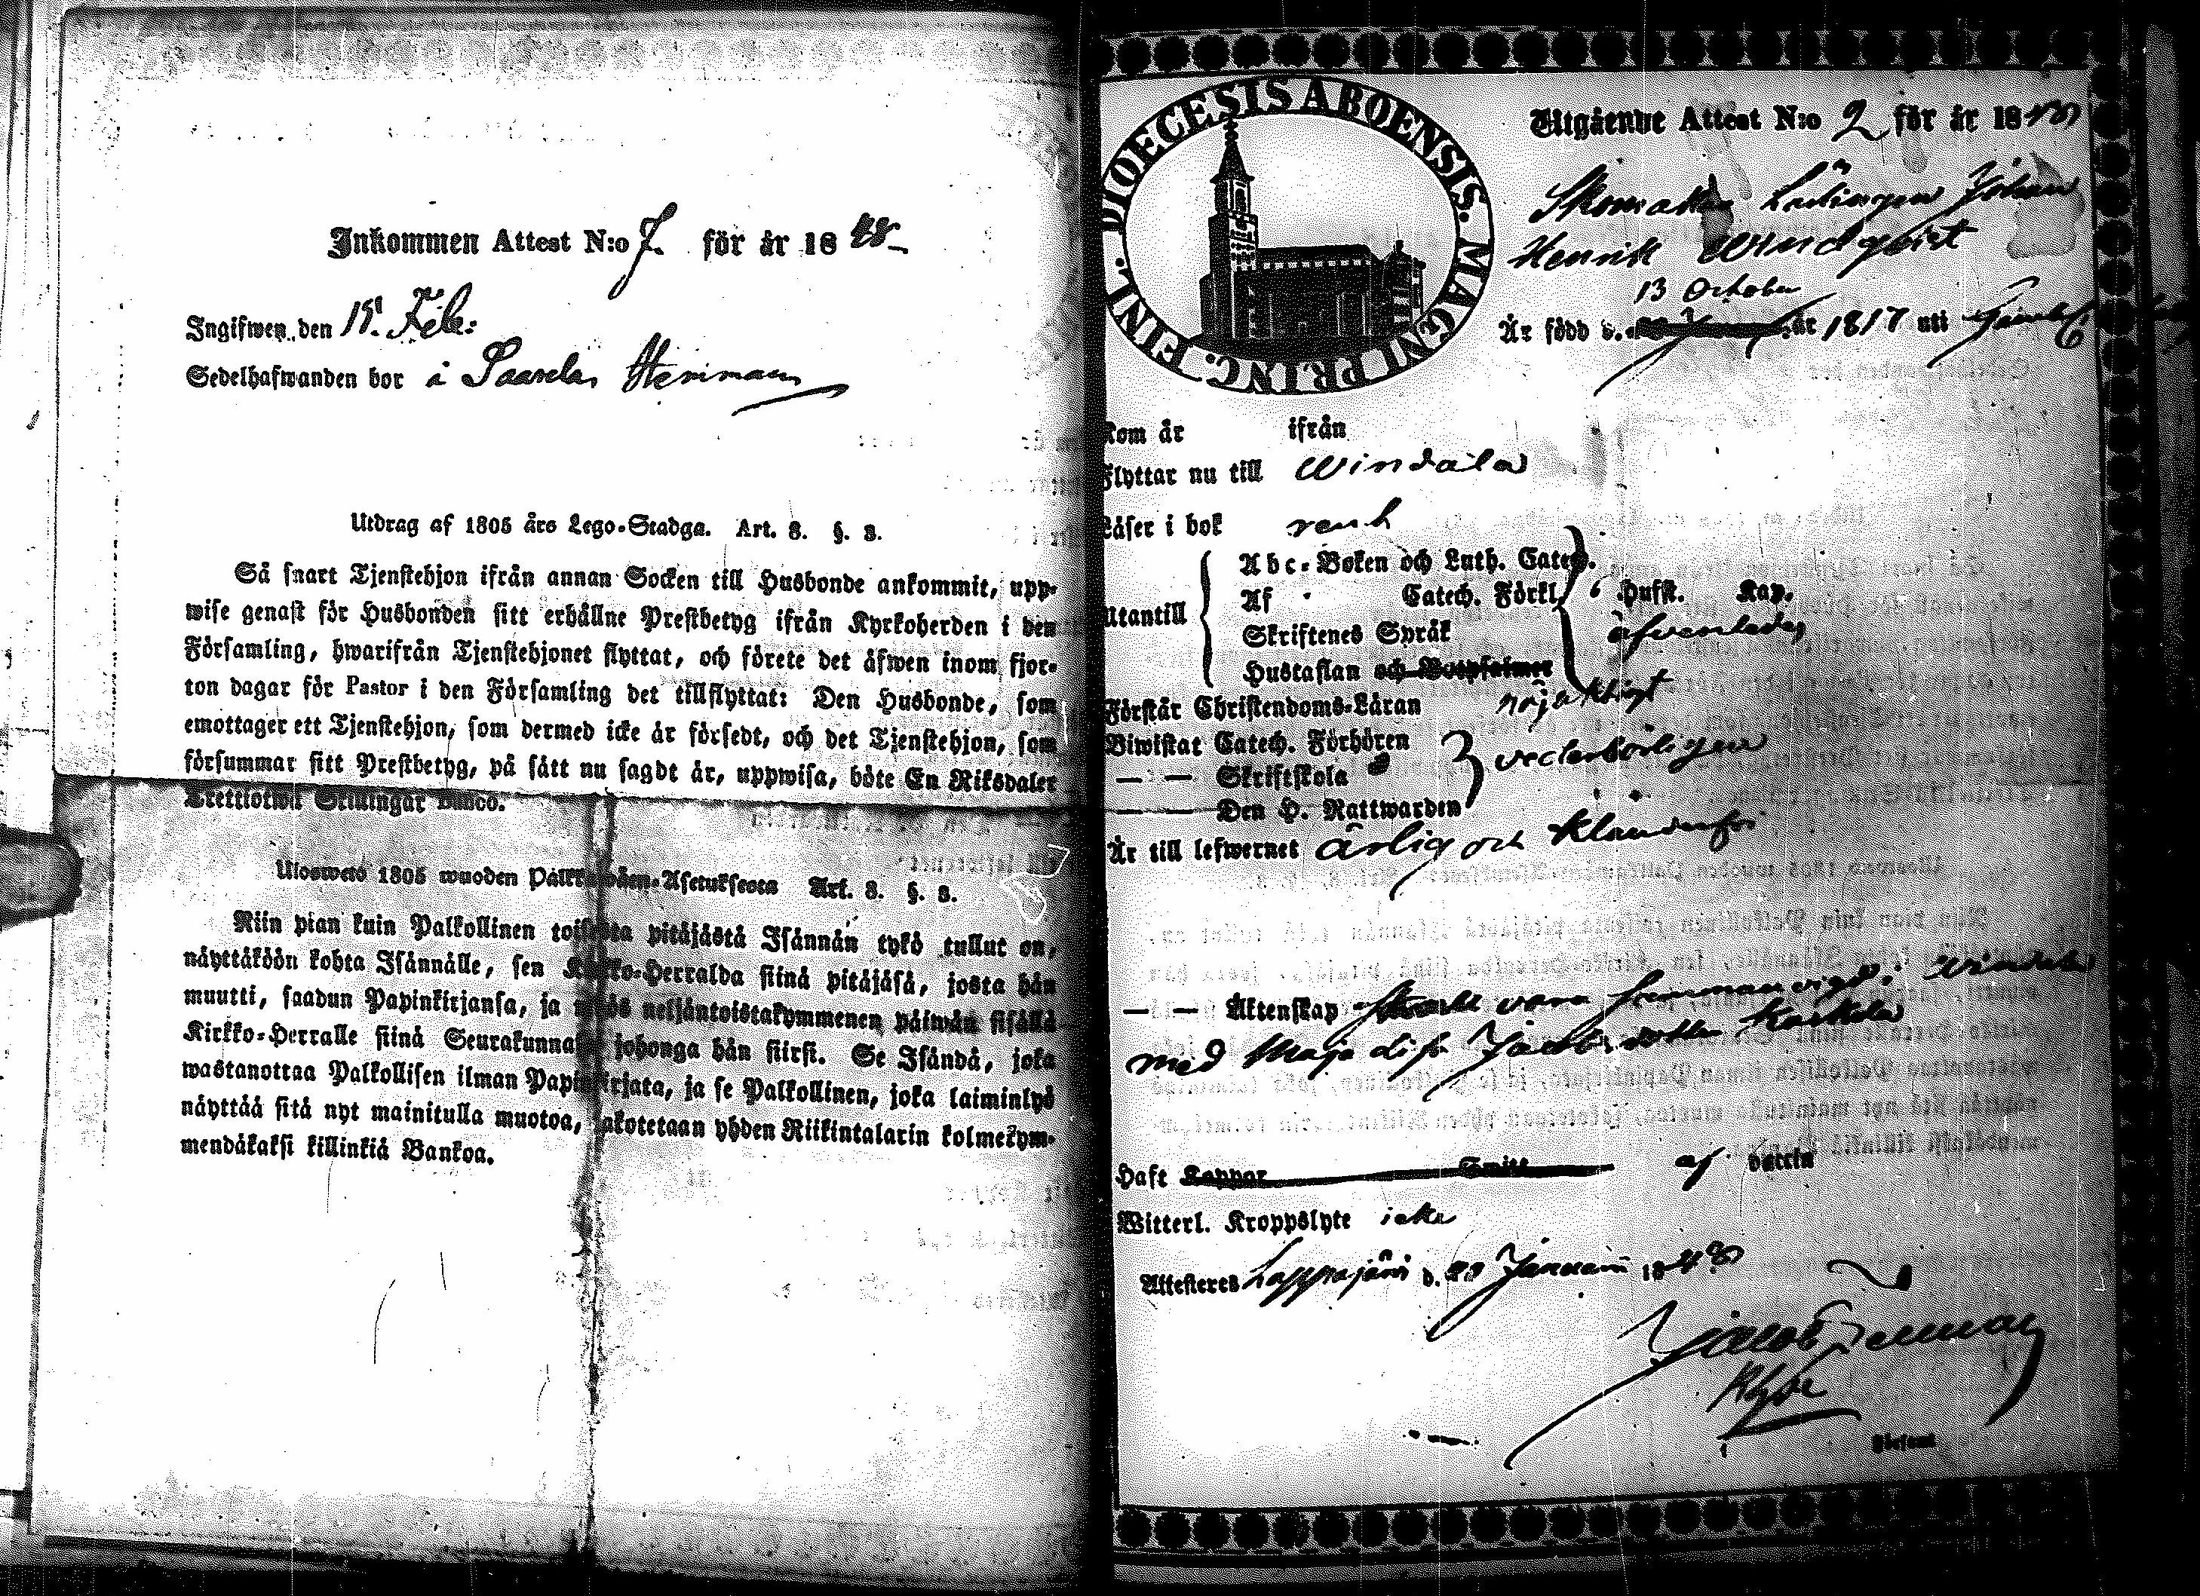 Inkommen Attest N:o 7. för år 1848
Ingifwen den 15. Feb:
Sedelhafwanden bor å
Utdrag af 1805 års Lego-Stadga. Art. 8. §. 3.
Så snart Tjenstehjon ifrån annan Socken till Husbonde ankommit, upp-
wise genast för Husbonden sitt erhållne Prestbetyg ifrån Kyrkoherden i den
Församling, hwarifrån Tjenstehjonet flyttat, och förete det äfwen inom fjor-
ton dagar för Pastor i den Församling det tillflyttat: Den Husbonde, som
emottager ett Tjenstehjon, som dermed icke är försedt, och det Tjenstehjon, som
försummar sitt Prestbetyg, på sätt nu sagdt är, uppwisa, böte En Riksdaler
Trettiotwå Skillingar Banco.
Uloswetö 1805 wuoden Palkkawäen-Asetuksesta Art. 8. §. 3.
Niin pian kuin Palkollinen toisesta pitäjästä Isännän tykö tullut on,
näyttäköön kohta Isännälle, sen Kirkko-Herralda siinä pitäjäsä, josta hän
muutti, saadun Papinkirjansa, ja myös neljäntoistakymmenen päiwän sisällä
Kirkko-Herralle siinä Seurakunnasa johonga hän siirsi. Se Isändä, joka
wastanottaa Palkollisen ilman Papinkirjata, ja se Palkollinen, joka laiminlyö
näyttää sitä nyt mainitulla muotoa, sakotetaan yhden Riikintalarin kolmekym-
mendäkaksi killinkiä Bankoa.
DIOECESIS ABOENSIS. MAGNI PRINC. FINL.
Utgående Attest N:o 2 för år 1848
Skomakar Lärlingen Johan
Henrik Windqvist
13 October
Är född d. år 1817 uti
Kom år ifrån
Flyttar nu till Windala
Läser i bok rent
Utantill
Abc-Boken och Luth. Catech.
Af Catech. Förkl. 6 Hufst. Kap.
Skriftenes Språk äfvenledes
Hustaflan och Botpsalmer
Förstår Christendoms-Läran nöjaktigt
Biwistat Catech. Förhören
— — Skriftskola vederbörligen
— — Den H. Nattwarden
Är till lefwernet ärlig och klanderfri
— — Äktenskap vara sammanvigd i Windala
med Maja Lisa Jacobsdotter Karkela
Haft Koppor Smitt af
Witterl. Kroppslyte icke
Attesteres Lappajärvi d. Januarii 1848